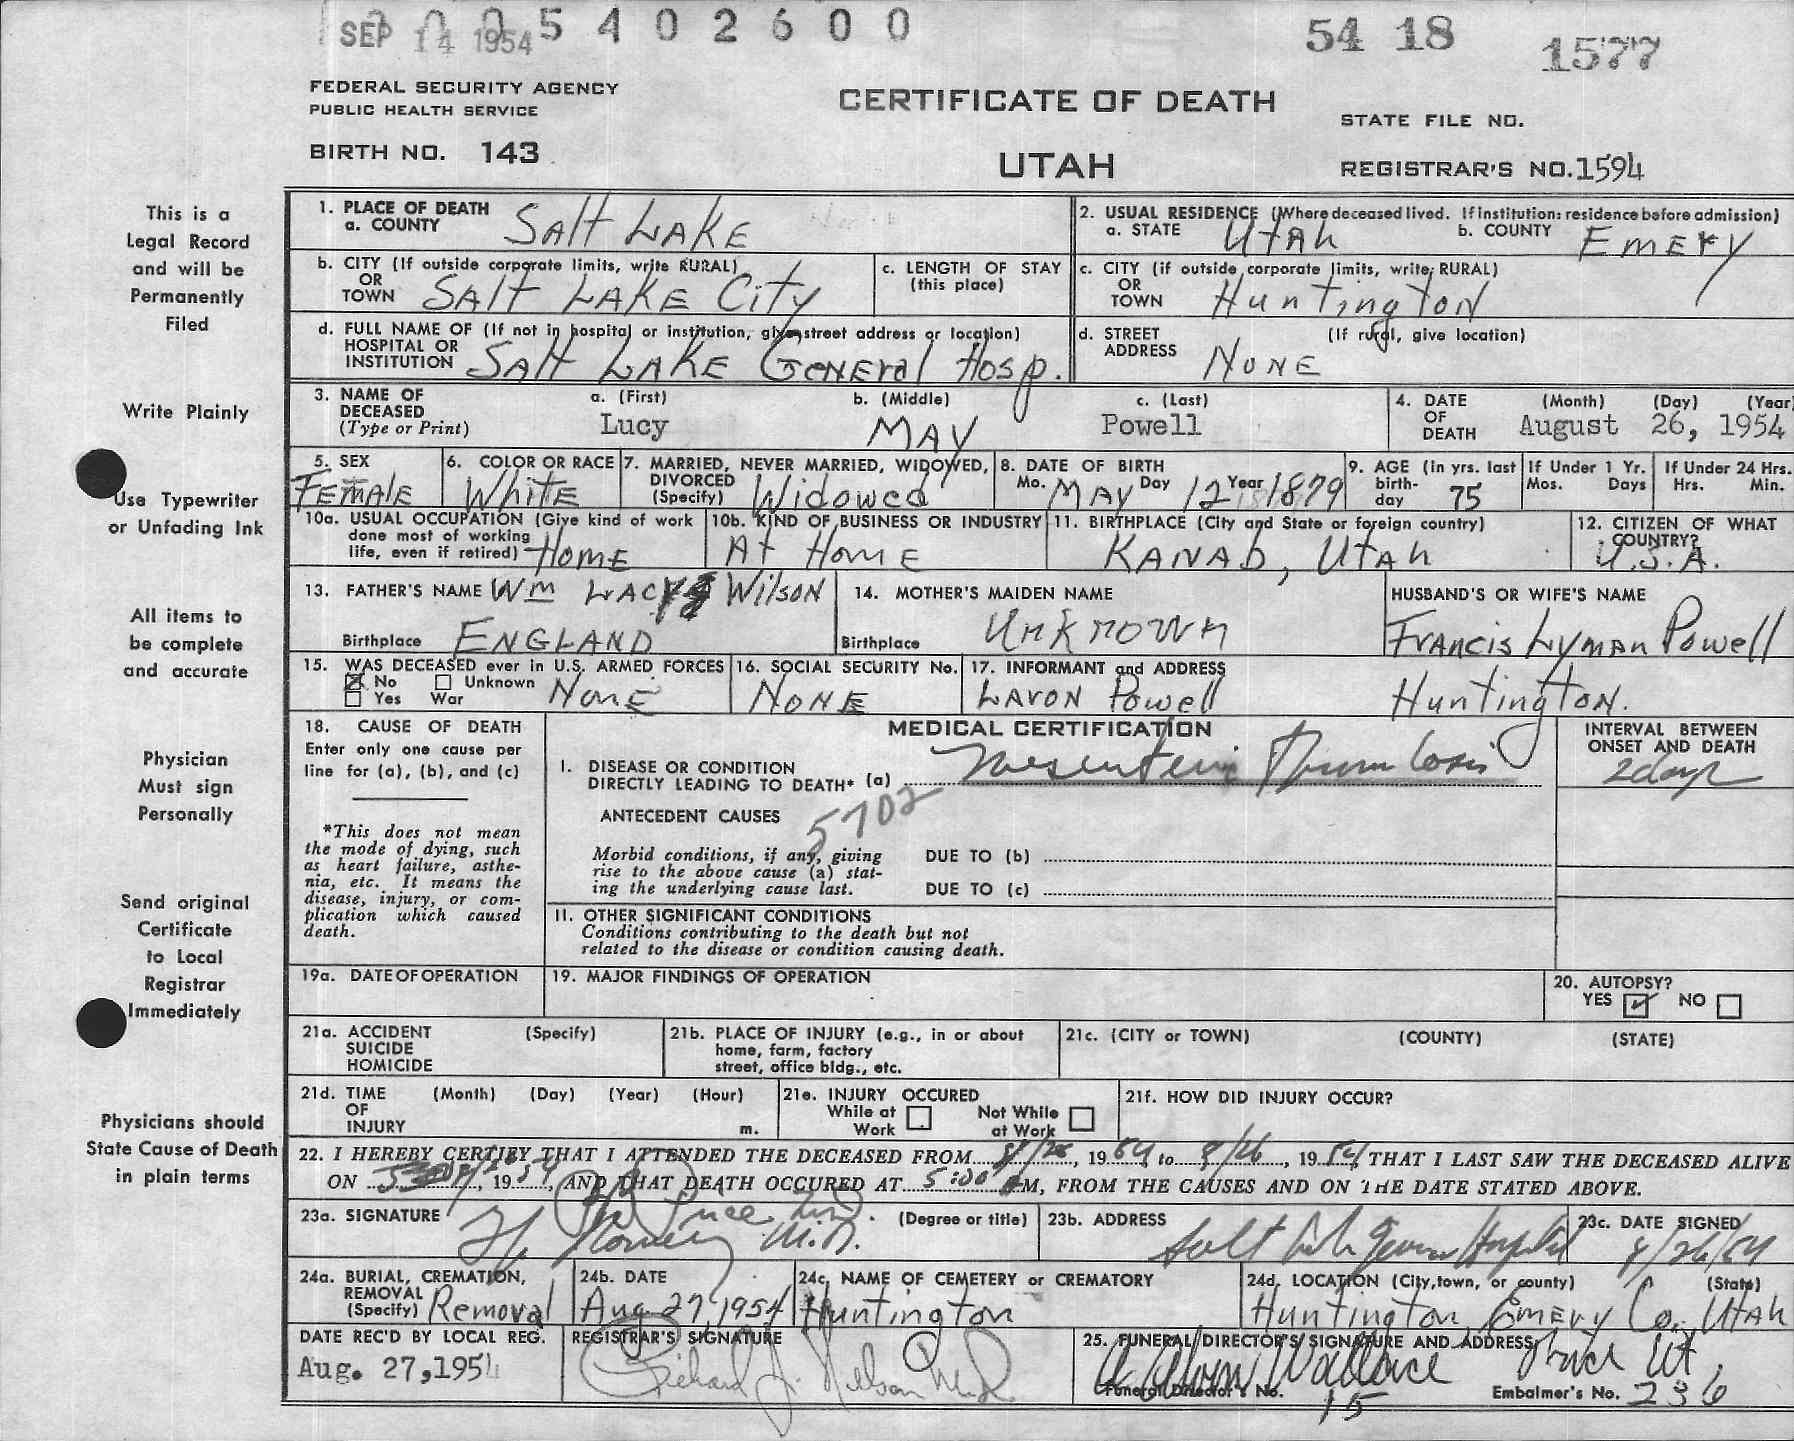 SEP 14 1954 5 4 0 2 6 0 0
54 18
1577
FEDERAL SECURITY AGENCY
PUBLIC HEALTH SERVICE
BIRTH NO. 143
CERTIFICATE OF DEATH
UTAH
STATE FILE NO.
REGISTRAR'S NO. 1594
This is a
Legal Record
and will be
Permanently
Filed
Write Plainly
Use Typewriter
or Unfading Ink
All items to
be complete
and accurate
Physician
Must sign
Personally
Send original
Certificate
to Local
Registrar
Immediately
Physicians should
State Cause of Death
in plain terms
1. PLACE OF DEATH
a. COUNTY Salt Lake
2. USUAL RESIDENCE (Where deceased lived. If institution: residence before admission)
a. STATE Utah b. COUNTY Emery
b. CITY (If outside corporate limits, write RURAL)
OR
TOWN Salt Lake City
c. LENGTH OF STAY
(this place)
c. CITY (if outside corporate limits, write RURAL)
OR
TOWN Huntington
d. FULL NAME OF (If not in hospital or institution, give street address or location)
HOSPITAL OR
INSTITUTION Salt Lake General Hosp.
d. STREET (If rural, give location)
ADDRESS None
3. NAME OF
DECEASED
(Type or Print)
a. (First) b. (Middle) c. (Last)
Lucy May Powell
4. DATE
OF
DEATH
(Month) (Day) (Year)
August 26, 1954
5. SEX
Female
6. COLOR OR RACE
White
7. MARRIED, NEVER MARRIED, WIDOWED,
DIVORCED
(Specify) Widowed
8. DATE OF BIRTH
Mo. May Day 12 Year 1879
9. AGE (in yrs. last
birth-
day 75
If Under 1 Yr.
Mos. Days
If Under 24 Hrs.
Hrs. Min.
10a. USUAL OCCUPATION (Give kind of work
done most of working
life, even if retired) Home
10b. KIND OF BUSINESS OR INDUSTRY
At Home
11. BIRTHPLACE (City and State or foreign country)
Kanab, Utah
12. CITIZEN OF WHAT
COUNTRY?
U.S.A.
13. FATHER'S NAME Wm Lacy Wilson
Birthplace England
14. MOTHER'S MAIDEN NAME
Unknown
Birthplace
HUSBAND'S OR WIFE'S NAME
Francis Lyman Powell
15. WAS DECEASED ever in U.S. ARMED FORCES
No Unknown
Yes War None
16. SOCIAL SECURITY No.
None
17. INFORMANT and ADDRESS
Lavon Powell Huntington.
18. CAUSE OF DEATH
Enter only one cause per
line for (a), (b), and (c)
*This does not mean
the mode of dying, such
as heart failure, asthe-
nia, etc. It means the
disease, injury, or com-
plication which caused
death.
MEDICAL CERTIFICATION
I. DISEASE OR CONDITION
DIRECTLY LEADING TO DEATH* (a) Mesenteric Thrombosis
INTERVAL BETWEEN
ONSET AND DEATH
2 days
ANTECEDENT CAUSES
5702
Morbid conditions, if any, giving
rise to the above cause (a) stat-
ing the underlying cause last.
DUE TO (b)
DUE TO (c)
II. OTHER SIGNIFICANT CONDITIONS
Conditions contributing to the death but not
related to the disease or condition causing death.
19a. DATE OF OPERATION
19. MAJOR FINDINGS OF OPERATION
20. AUTOPSY?
YES ✓ NO
21a. ACCIDENT (Specify)
SUICIDE
HOMICIDE
21b. PLACE OF INJURY (e.g., in or about
home, farm, factory
street, office bldg., etc.
21c. (CITY or TOWN) (COUNTY) (STATE)
21d. TIME (Month) (Day) (Year) (Hour)
OF
INJURY m.
21e. INJURY OCCURED
While at Not While
Work at Work
21f. HOW DID INJURY OCCUR?
22. I HEREBY CERTIFY THAT I ATTENDED THE DECEASED FROM , 1954 to 8/26, 1954, THAT I LAST SAW THE DECEASED ALIVE
ON , 1954, AND THAT DEATH OCCURED AT 5:00 M, FROM THE CAUSES AND ON THE DATE STATED ABOVE.
23a. SIGNATURE Price M.D. (Degree or title)
M.D.
23b. ADDRESS
Salt Lake General Hospital
23c. DATE SIGNED
8/26/54
24a. BURIAL, CREMATION,
REMOVAL
(Specify) Removal
24b. DATE
Aug 27, 1954
24c. NAME OF CEMETERY or CREMATORY
Huntington
24d. LOCATION (City, town, or county) (State)
Huntington, Emery Co., Utah
DATE REC'D BY LOCAL REG.
Aug. 27, 1954
REGISTRAR'S SIGNATURE
Richard J. Nelson
25. FUNERAL DIRECTOR'S SIGNATURE AND ADDRESS
Wallace Price Ut.
Funeral Director's No. 15
Embalmer's No. 236